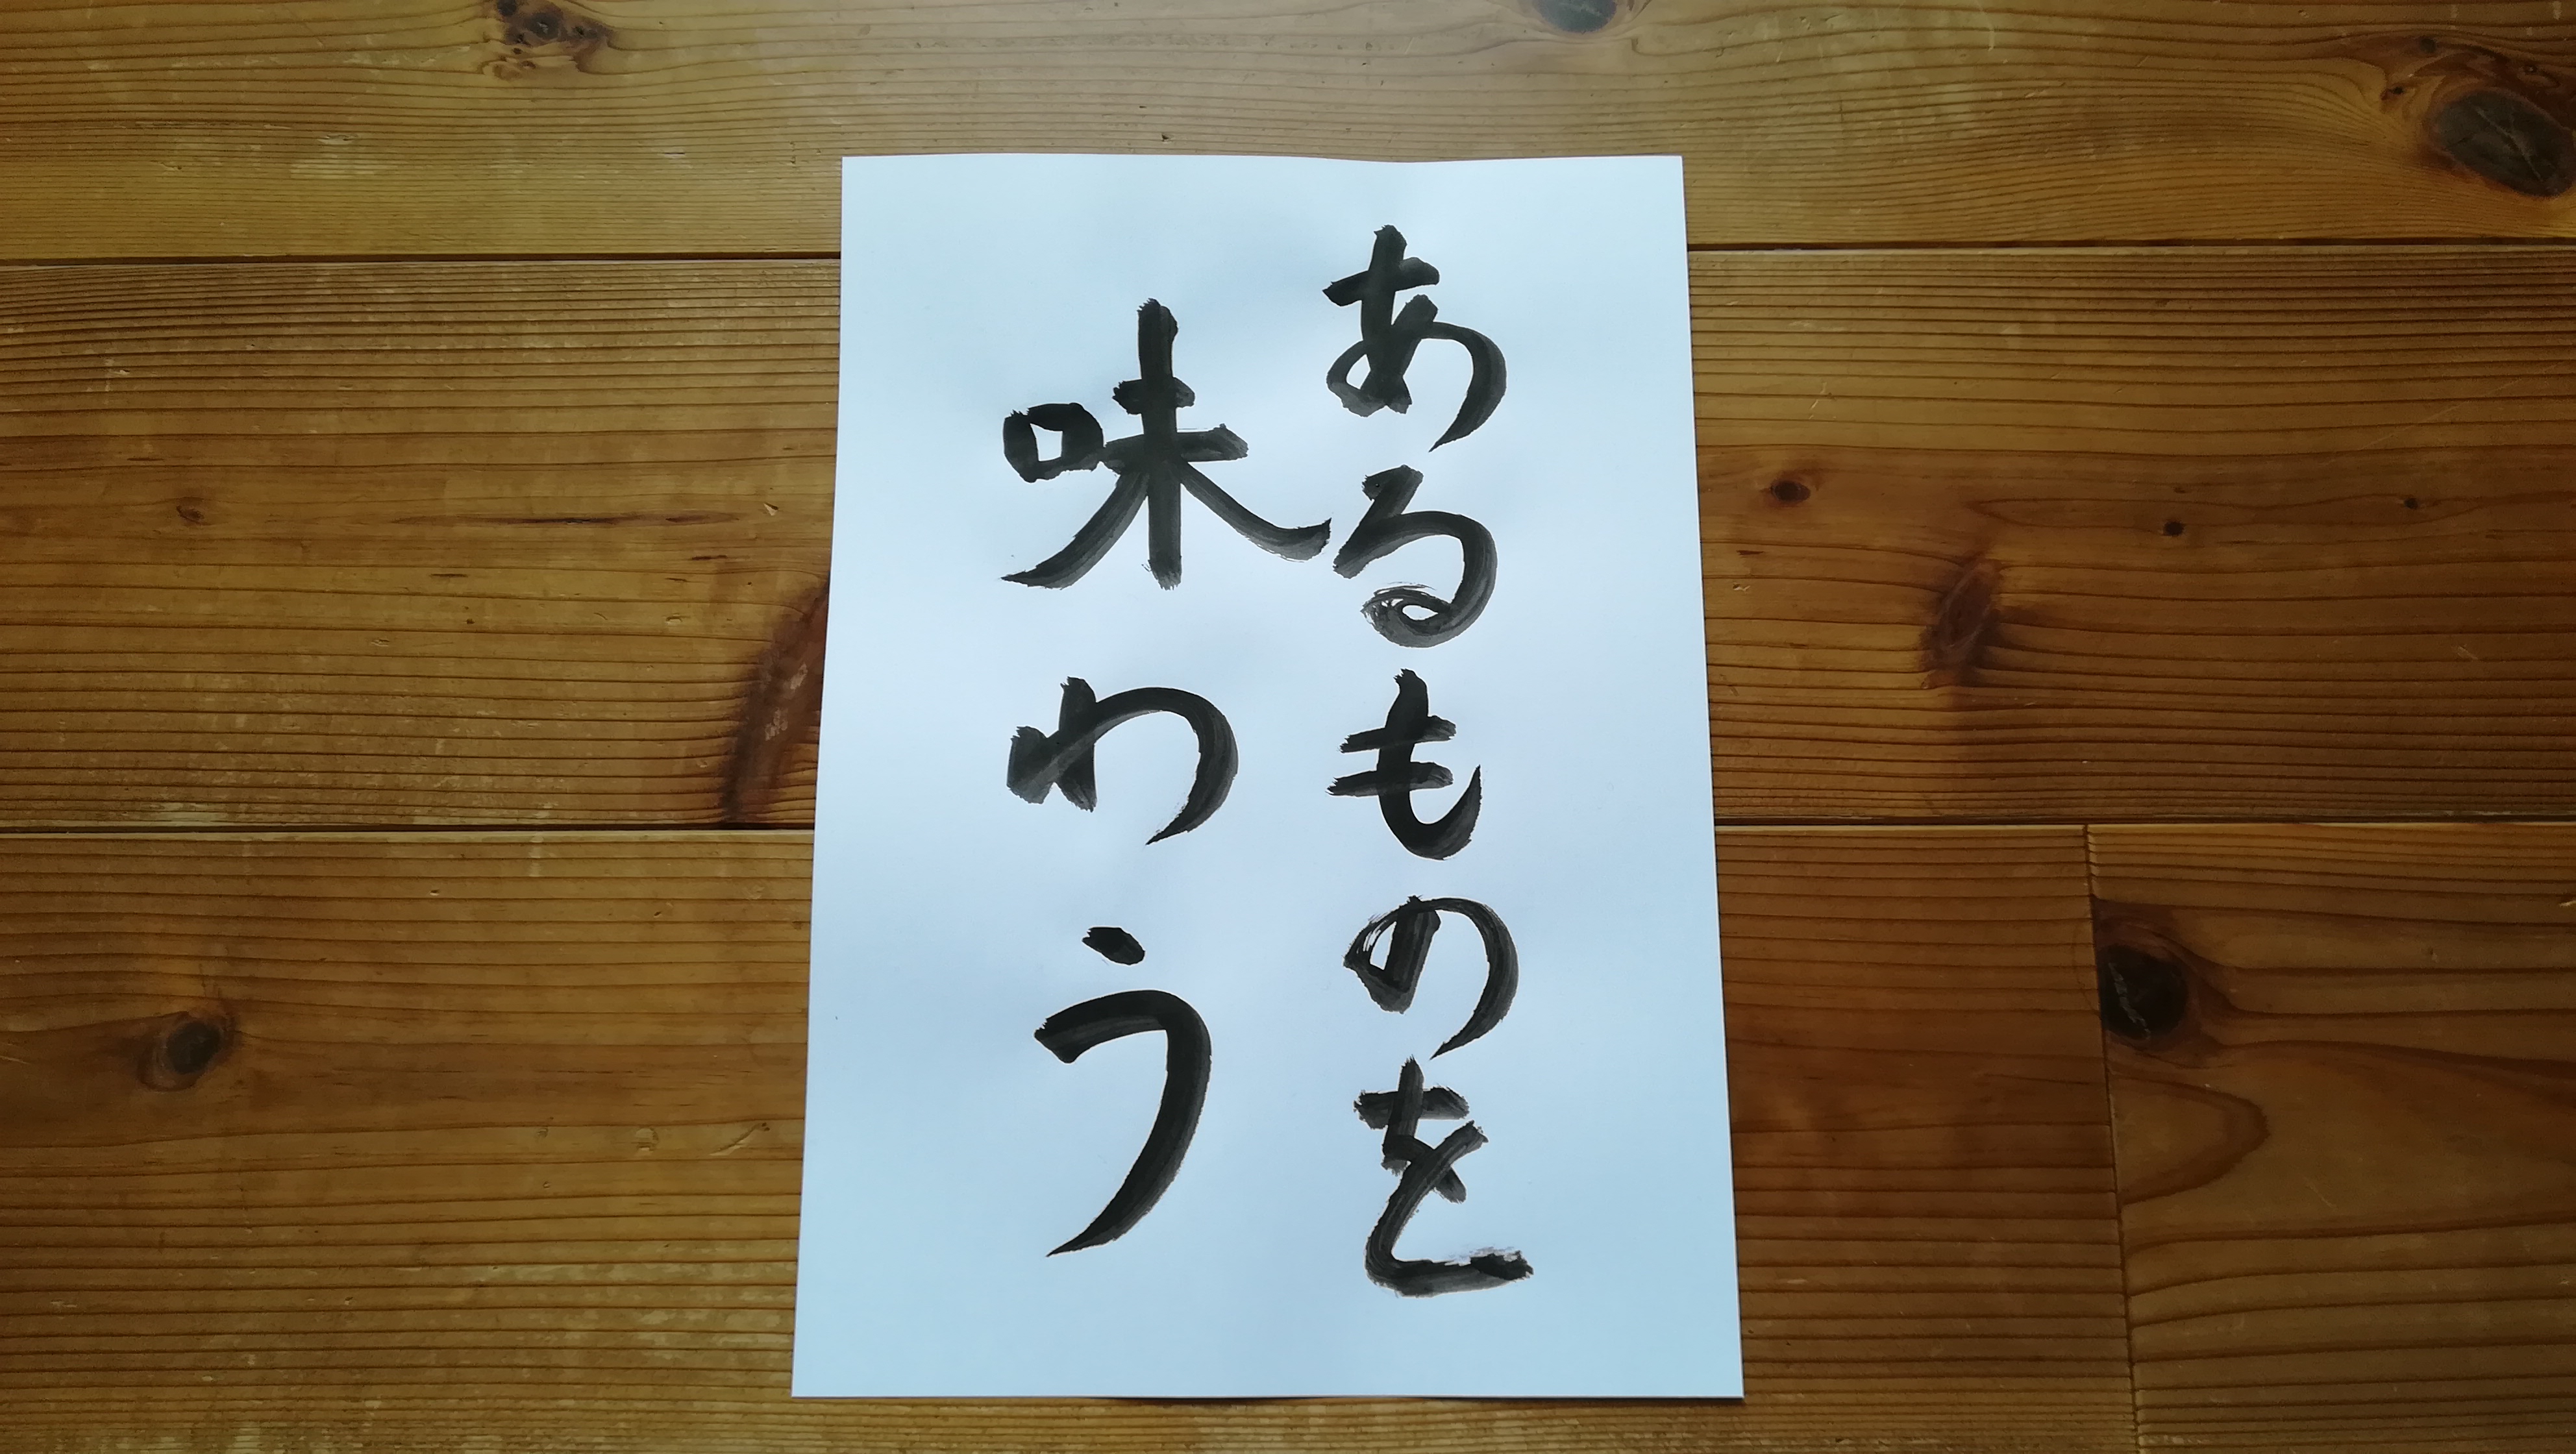 あるものを
味わう